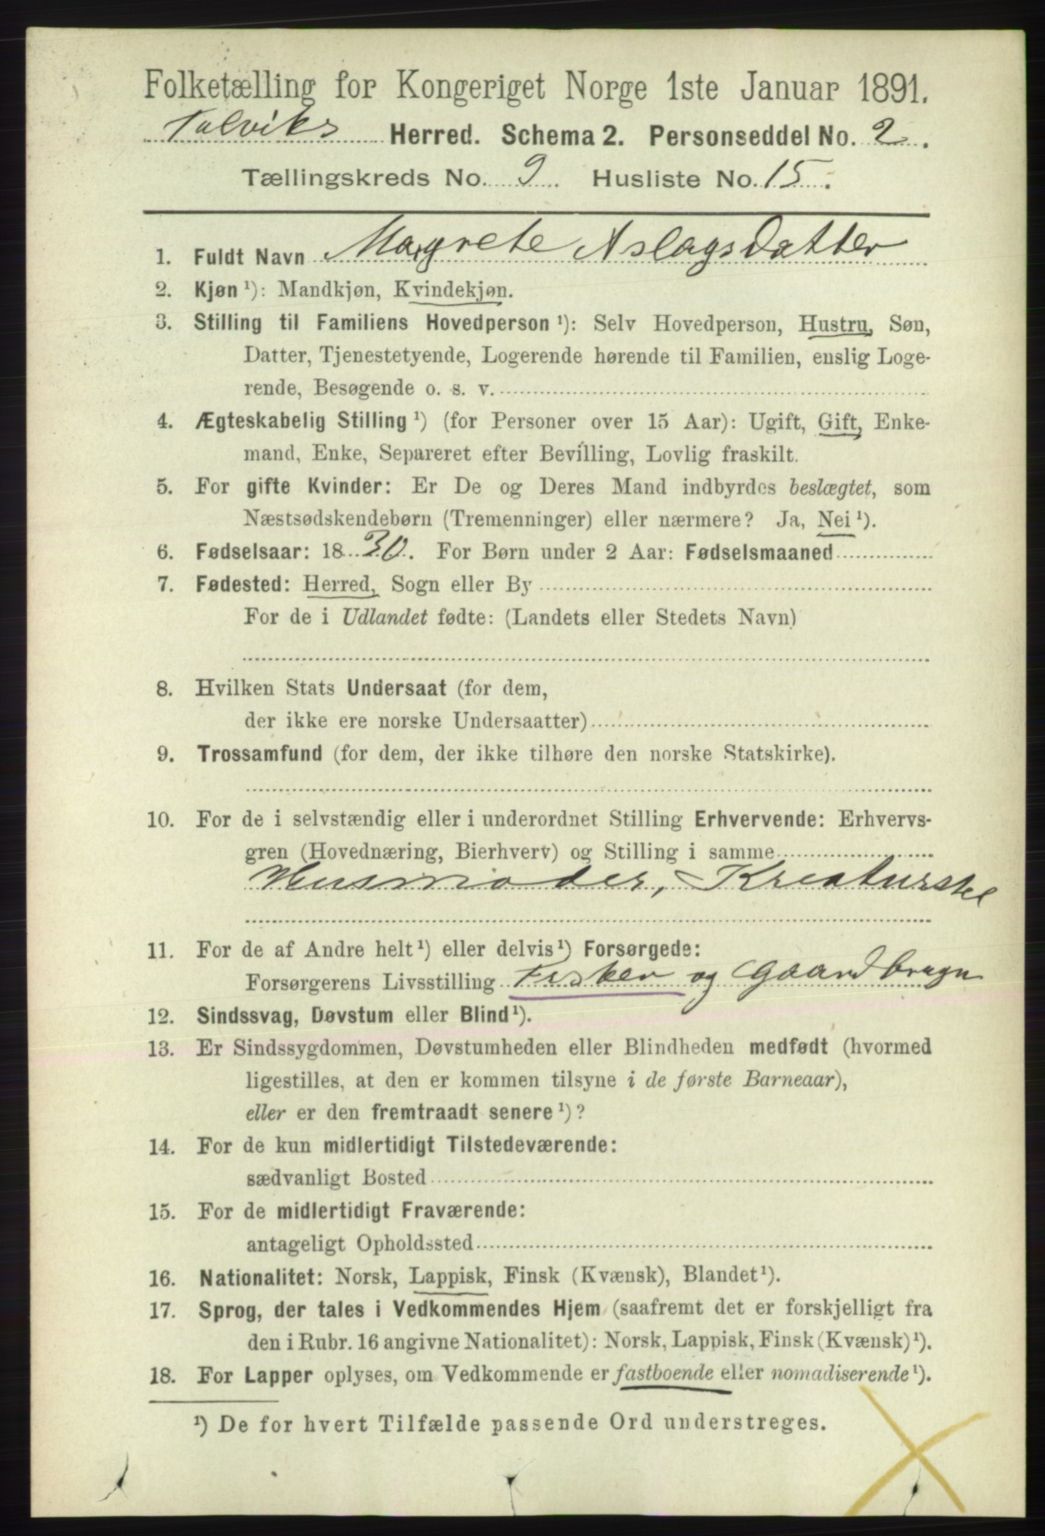 Folketælling for Kongeriget Norge 1ste Januar 1891.
Talviks Herred. Schema 2. Personseddel No. 2.
Tællingskreds No. 9. Husliste No. 15.
1. Fuldt Navn Magrete Aslagsdatter
2. Kjøn ¹): Mandkjøn, Kvindekjøn.
3. Stilling til Familiens Hovedperson ¹): Selv Hovedperson, Hustru, Søn,
Datter, Tjenestetyende, Logerende hørende til Familien, enslig Loge-
rende, Besøgende o. s. v.
4. Ægteskabelig Stilling ¹) (for Personer over 15 Aar): Ugift, Gift, Enke-
mand, Enke, Separeret efter Bevilling, Lovlig fraskilt.
5. For gifte Kvinder: Er De og Deres Mand indbyrdes beslægtet, som
Næstsødskendebørn (Tremenninger) eller nærmere? Ja, Nei ¹).
6. Fødselsaar: 1830. For Børn under 2 Aar: Fødselsmaaned
7. Fødested: Herred, Sogn eller By
For de i Udlandet fødte: (Landets eller Stedets Navn)
8. Hvilken Stats Undersaat (for dem,
der ikke ere norske Undersaatter)
9. Trossamfund (for dem, der ikke tilhøre den norske Statskirke).
10. For de i selvstændig eller i underordnet Stilling Erhvervende: Erhvervs-
gren (Hovednæring, Bierhverv) og Stilling i samme
Husmoder, Kreaturstel
11. For de af Andre helt ¹) eller delvis ¹) Forsørgede:
Forsørgerens Livsstilling Fisker og Gaardbruger
12. Sindssvag, Døvstum eller Blind ¹).
13. Er Sindssygdommen, Døvstumheden eller Blindheden medfødt (hvormed
ligestilles, at den er kommen tilsyne i de første Barneaar),
eller er den fremtraadt senere ¹)?
14. For de kun midlertidigt Tilstedeværende:
sædvanligt Bosted
15. For de midlertidigt Fraværende:
antageligt Opholdssted
16. Nationalitet: Norsk, Lappisk, Finsk (Kvænsk), Blandet ¹).
17. Sprog, der tales i Vedkommendes Hjem (saafremt det er forskjelligt fra
den i Rubr. 16 angivne Nationalitet): Norsk, Lappisk, Finsk (Kvænsk) ¹).
18. For Lapper oplyses, om Vedkommende er fastboende eller nomadiserende ¹).
¹) De for hvert Tilfælde passende Ord understreges.